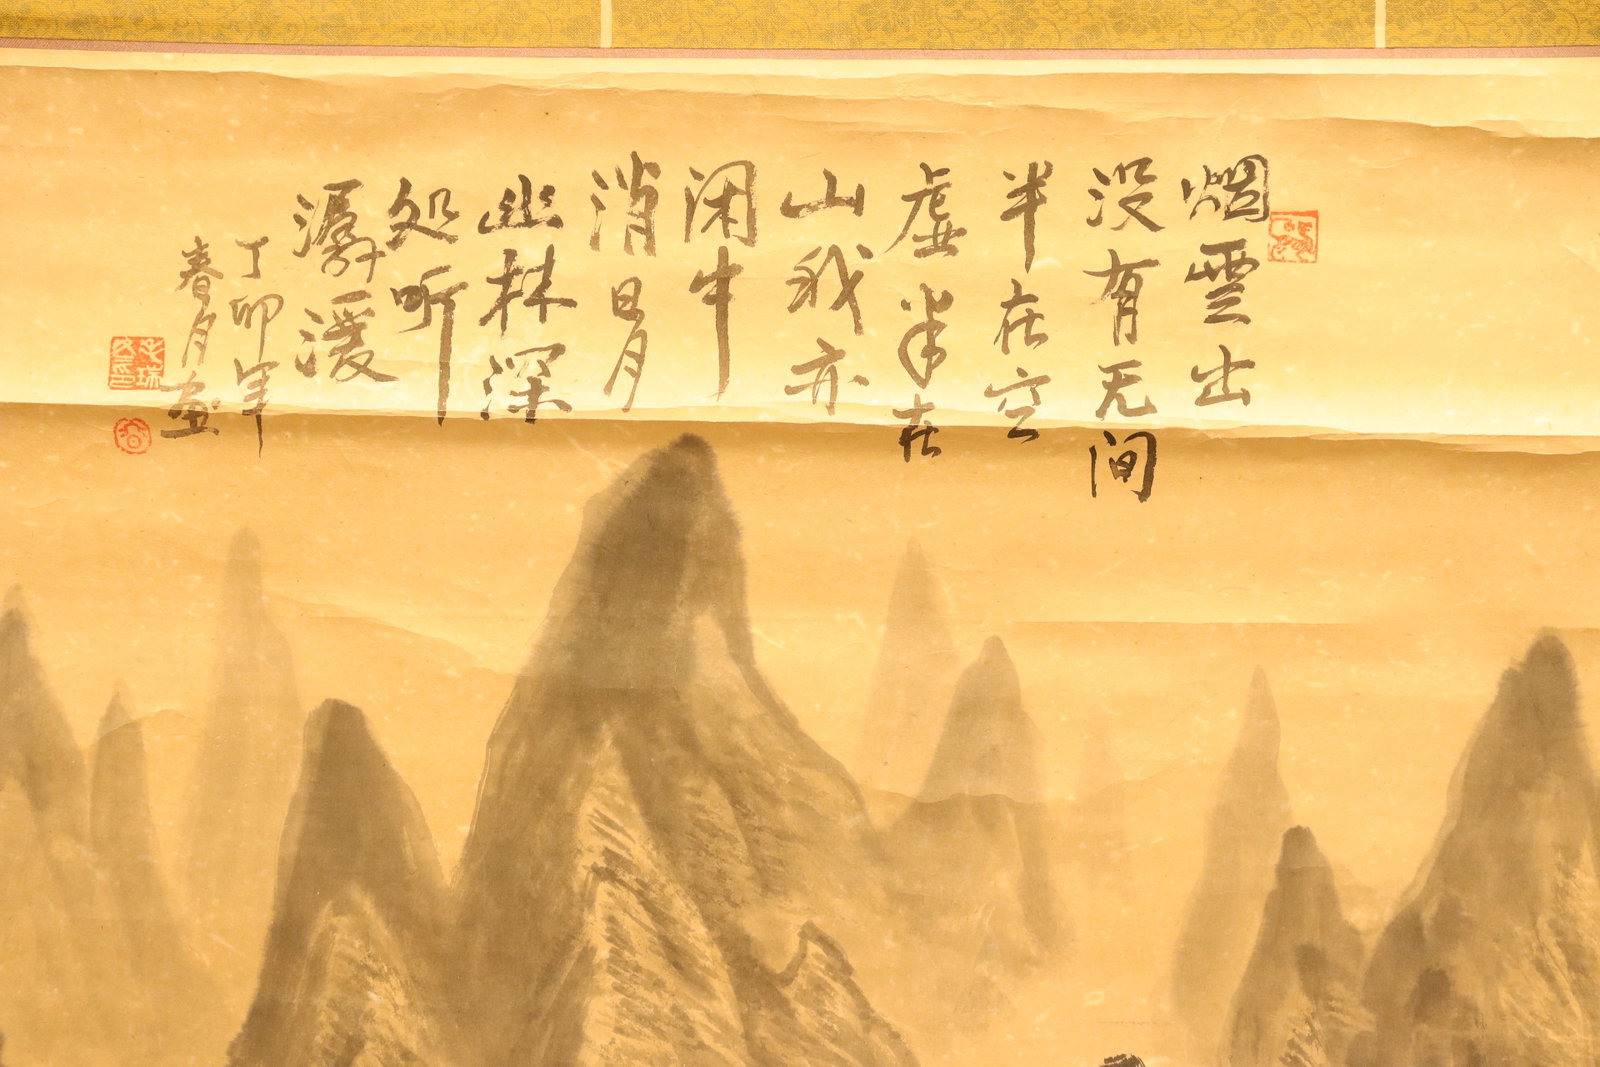 烟雲出
没有无间
半在空
虚半在
山我亦
闲中
消日月
幽林深
处听
潺湲
丁卯年
春月画